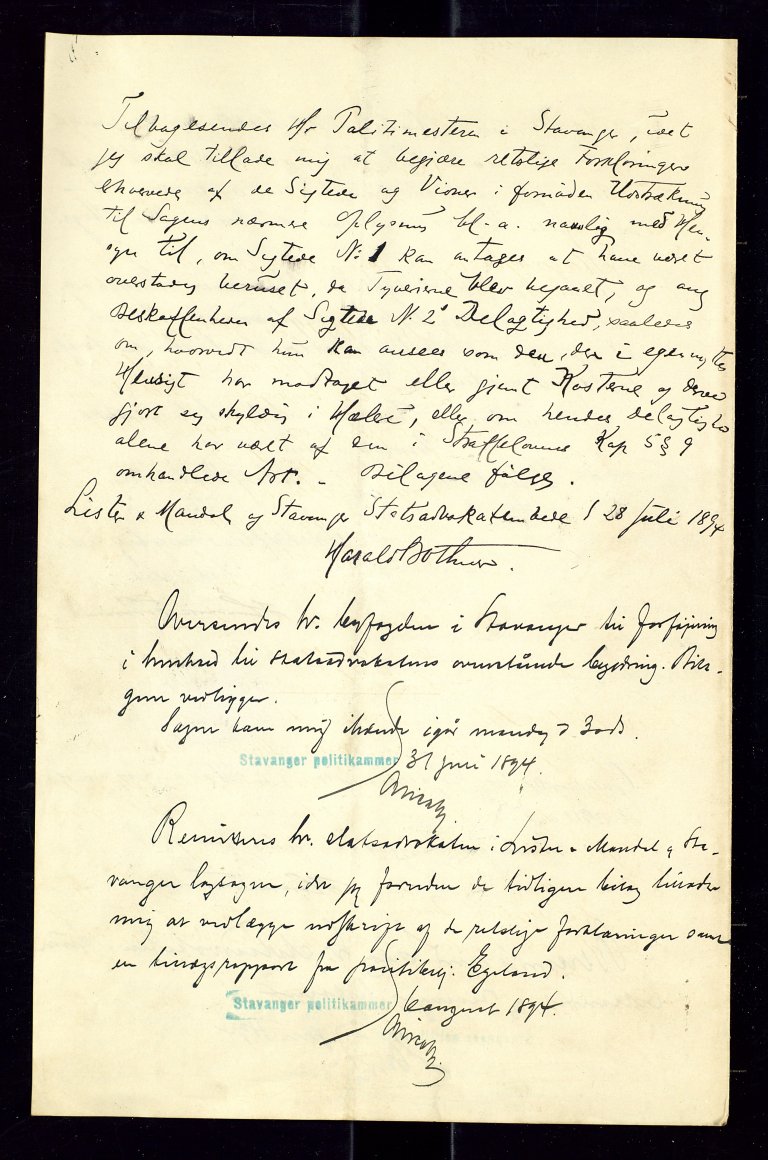 Tilbagesendes Hr Politimesteren i Stavanger, idet
jeg skal tillade mig at begjære retslige Forklaringer
erhvervede af de Sigtede og Vidner i fornøden Udstrækning
til Sagens nærmere Oplysning bl. a. navnlig med Hen-
syn til, om Sigtede No 1 kan antages at have været
overstadig beruset, da Tyverierne blev begaaet, og ang
Beskaffenheden af Sigtede No 2s Delagtighed, saaledes
om, hvorvidt hun kan ansees som den, der i egennyttig
Hensigt har modtaget eller gjemt Kosterne og derved
gjort sig skyldig i Hæleri, eller om hendes Delagtighed
alene har været af den i Straffelovens Kap 5 § 9
omhandlede Art. - Bilagene følger.
Lister & Mandal og Stavanger Statsadvokatembede d 28 Juli 1894
Harald Bothner.
Oversendes hr. byfogden i Stavanger til forføining
i henhold til statsadvokatens ovenstående begjæring. Bila-
gene vedligger.
Sagen kom mig ihænde igår mandag d 30 ds.
Stavanger politikammer 31 juli 1894.
Remitteres hr. statsadvokaten i Lister & Mandal & Sta-
vanger lagsogn, idet jeg foruden de tidligere bilag tillader
mig at vedlægge udskrift af de retslige forklaringer samt
en tillægsrapport fra politibetj. Egeland.
Stavanger politikammer 6 august 1894.